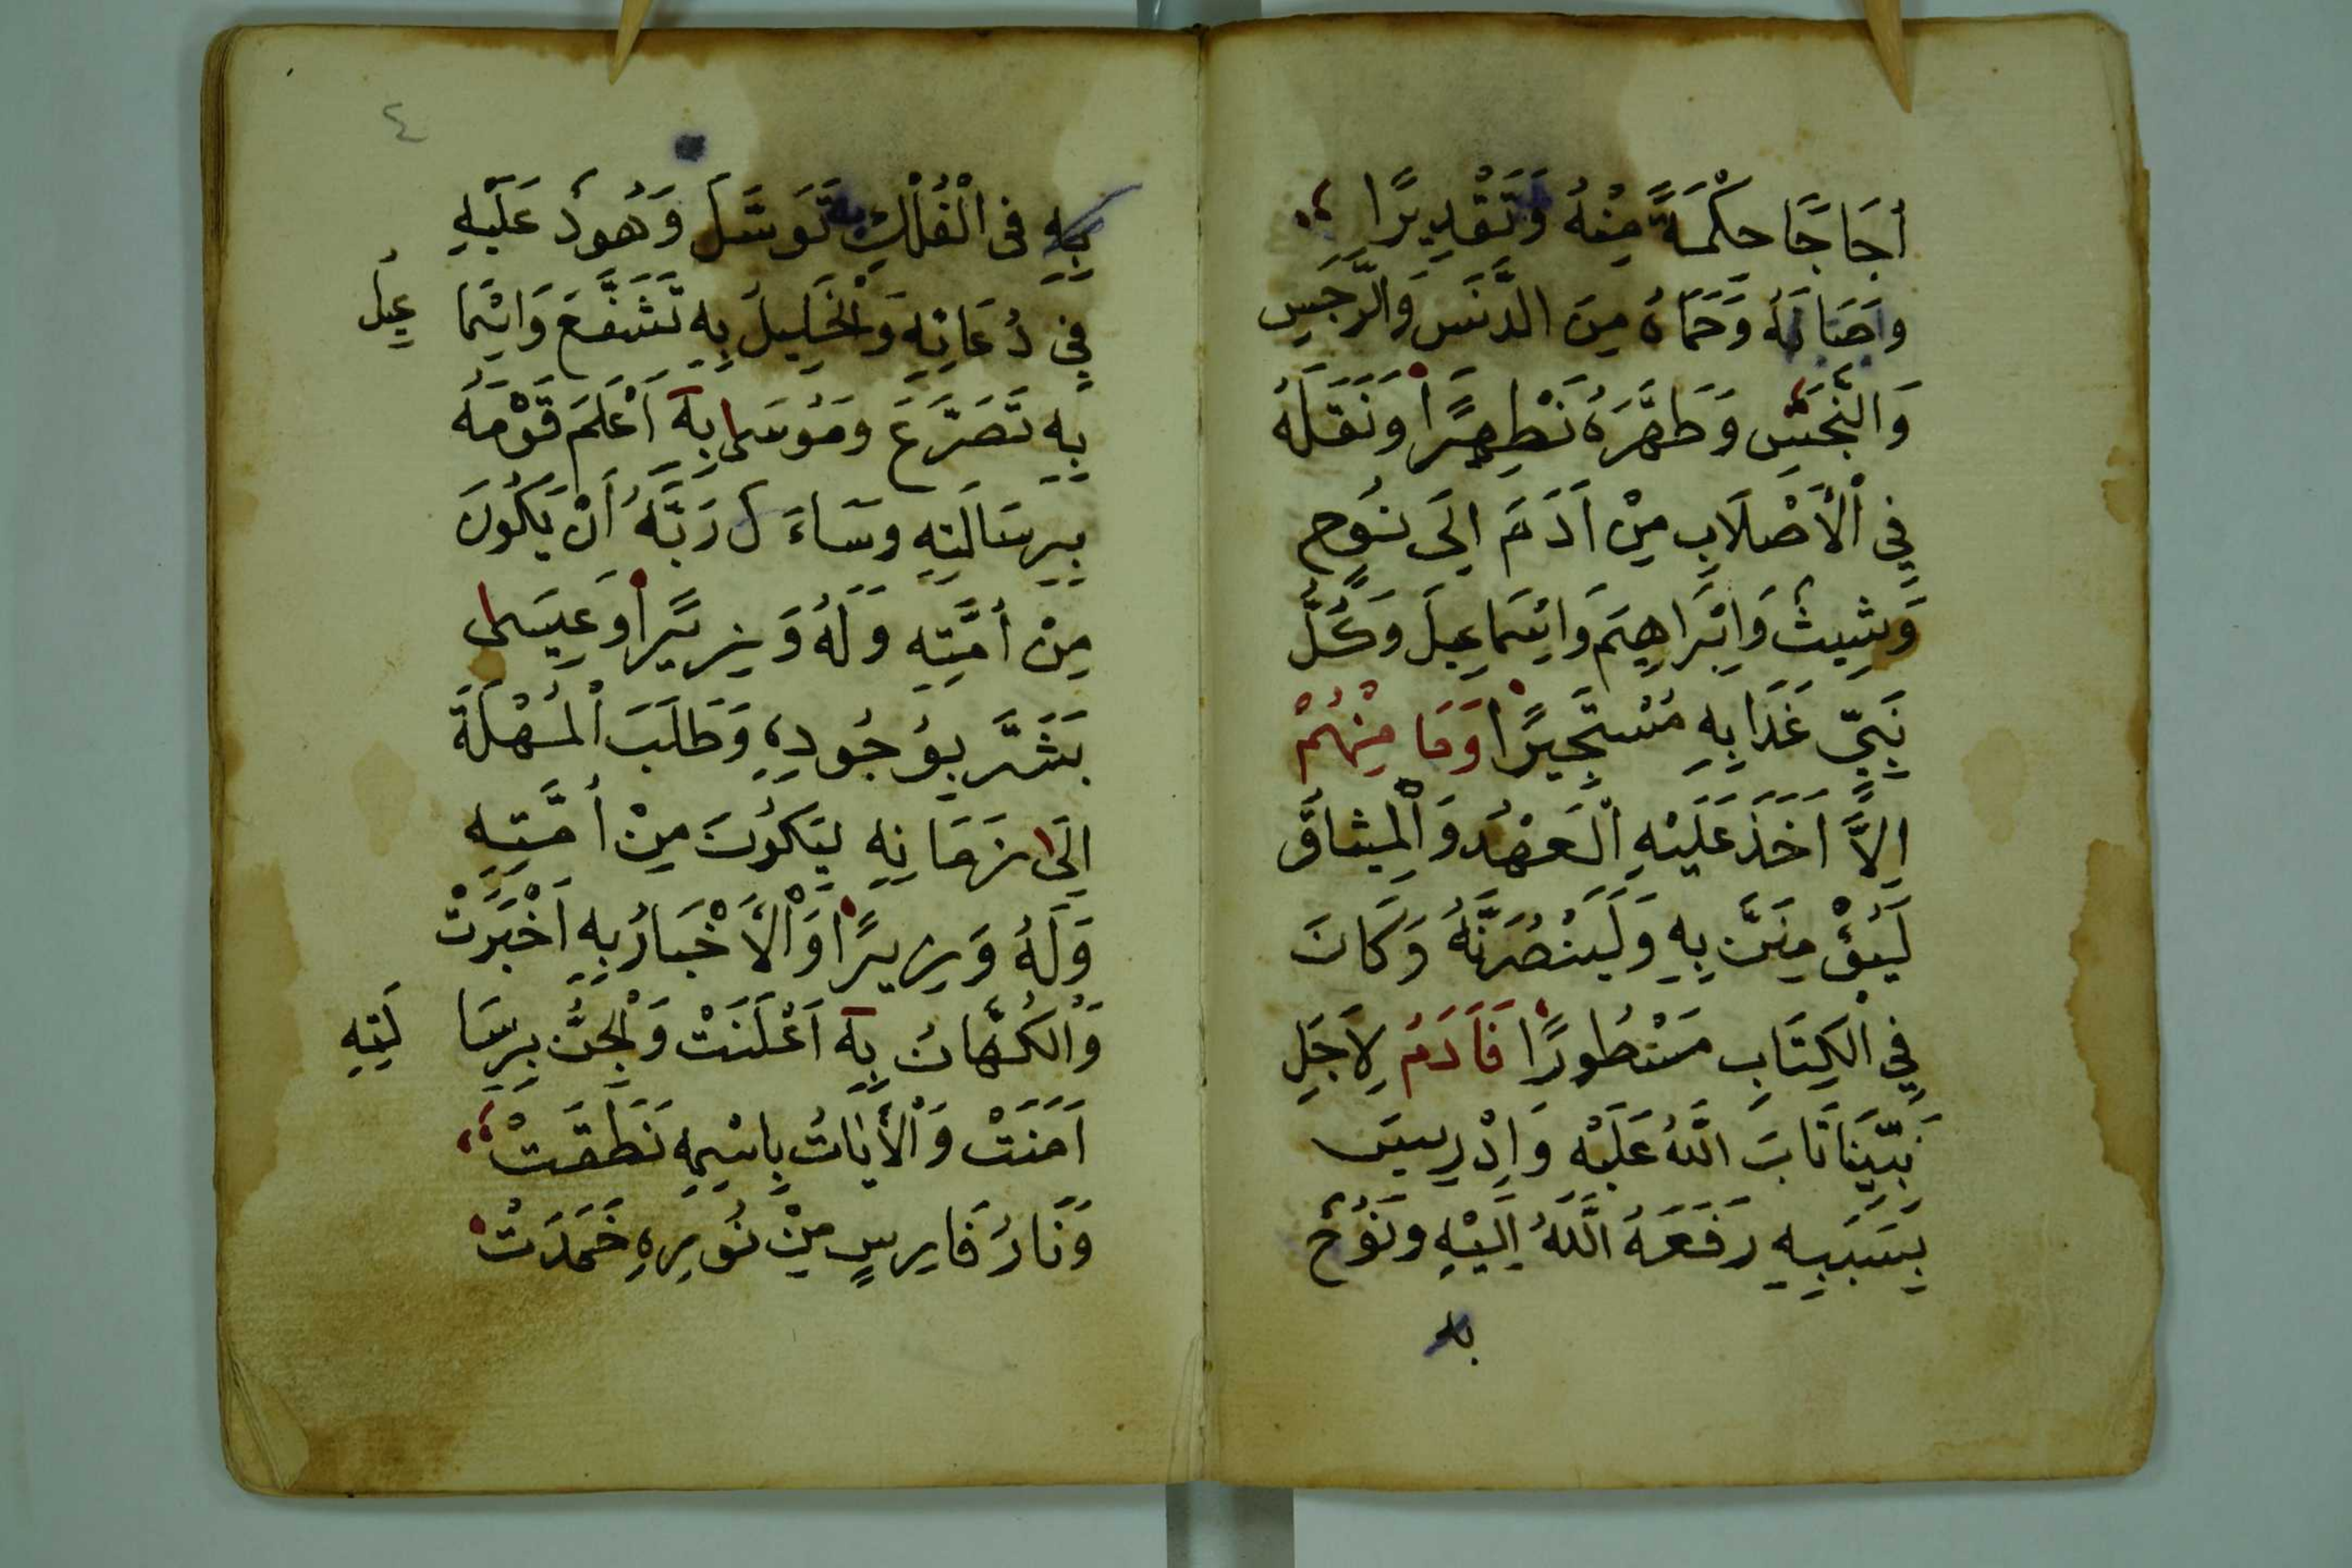 أُجَاجًا حِكْمَةً مِنْهُ وَتَقْدِيرًا
وَصَانَهُ وَحَمَاهُ مِنَ الدَّنَسِ وَالرَّجَسِ
وَالنَّجَسِ وَطَهَّرَهُ تَطْهِيرًا وَنَقَلَهُ
فِي الْأَصْلَابِ مِنْ اَدَمَ اِلَى نُوحٍ
وَشِيثَ وَاِبْرَاهِيمَ وَاِسْمَاعِيلَ وَكُلُّ
نَبِيٍّ غَدَا بِهِ مُسْتَجِيرًا وَمَا مِنْهُمْ
اِلَّا اَخَذَ عَلَيْهِ الْعَهْدَ وَالْمِيثَاقَ
لَيُؤْمِنَنَّ بِهِ وَلَيَنْصُرَنَّهُ وَكَانَ
فِي الْكِتَابِ مَسْطُورًا فَاَدَمُ لِاَجَلِ
نَبِيِّنَا تَابَ اللّٰهُ عَلَيْهِ وَاِدْرِيسَ
بِسَبَبِهِ رَفَعَهُ اللَّهُ اِلَيْهِ وَنُوحٌ
به
٤
بِهِ فِى الْفُلْكِ به تَوَسَّلَ وَهُودٌ عَلَيْهِ
فِي دُعَائِهِ وَالْخَلِيلُ بِهِ تَشَفَّعَ وَاِسْمَا عِيلُ
بِهِ تَضَرَّعَ وَمُوسَى بِهِ اَعْلَمَ قَوْمَهُ
بِرِسَالَتِهِ وَسَاءَ ل رَبَّهُ اَنْ يَكُونَ
مِنْ أُمَّتِهِ وَلَهُ وَزِيرًا وَعِيسَى
بَشَّرَ بِوُجُودِهِ وَطَلَبَ الْمُهْلَةَ
اِلَى زَمَانِهِ لِيَكُونَ مِنْ أُمَّتِهِ
وَلَهُ وَزِيرًا وَالْأَخْبَارُ بِهِ اَخْبَرَتْ
وَالْكُهَّانُ بِهِ اَعْلَنَتْ وَالْجِنُّ بِرِسَا لَتِهِ
اَمَنَتْ وَالْأَيَاتُ بِاسْمِهِ نَطَقَتْ
وَنَارُ فَارِسٍ مِنْ نُورِهِ خَمَدَتْ